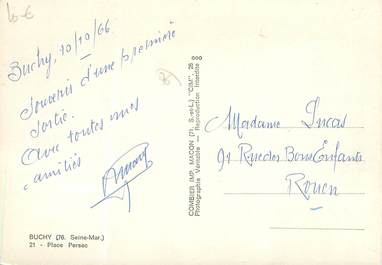 10 €
Buchy, 10/10/66
Souvenir d'une première
sortie.
Avec toutes mes
amitiés
Madame Lucas
91 Rue des Bons Enfants
Rouen
BUCHY (76. Seine-Mar.)
21 - Place Persac
COMBIER IMP. MACON (71, S.-et-L.) "CIM", 26 000
Photographie Véritable — Reproduction Interdite